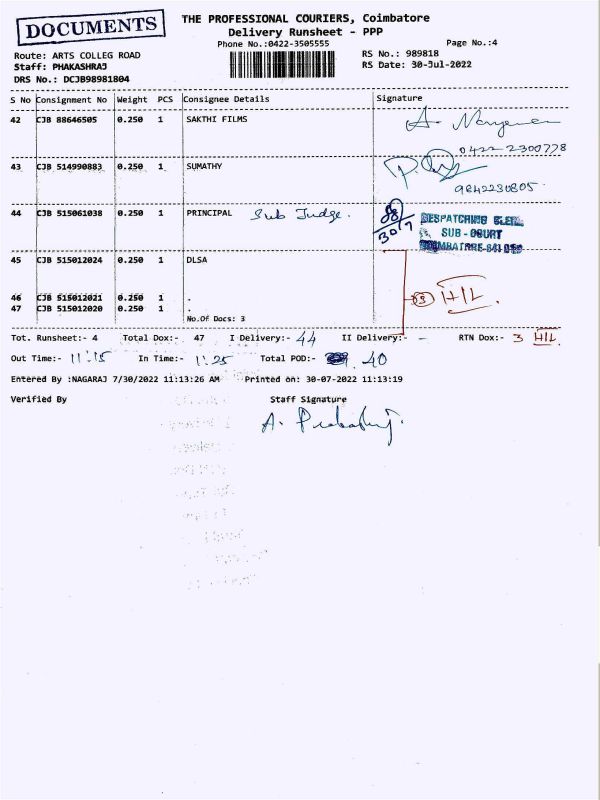 DOCUMENTS
THE PROFESSIONAL COURIERS, Coimbatore
Delivery Runsheet - PPP
Phone No.:0422-3505555
Page No.:4
Route: ARTS COLLEG ROAD
RS No.: 989818
Staff: PHAKASHRAJ
RS Date: 30-Jul-2022
DRS No.: DCJB98981804
S No Consignment No Weight PCS Consignee Details Signature
42 CJB 88646505 0.250 1 SAKTHI FILMS
0422 2300778
43 CJB 514990883 0.250 1 SUMATHY
9842230805
44 CJB 515061038 0.250 1 PRINCIPAL Sub Judge.
30/7
DESPATCHING CLERK
SUB - COURT
45 CJB 515012024 0.250 1 DLSA
46 CJB 515012021 0.250 1 .
47 CJB 515012020 0.250 1 .
3 H/L
No.Of Docs: 3
Tot. Runsheet:- 4 Total Dox:- 47 I Delivery:- 44 II Delivery:- - RTN Dox:- 3 H/L
Out Time:- 11:15 In Time:- 1:25 Total POD:- 40
Entered By :NAGARAJ 7/30/2022 11:13:26 AM Printed on: 30-07-2022 11:13:19
Verified By Staff Signature